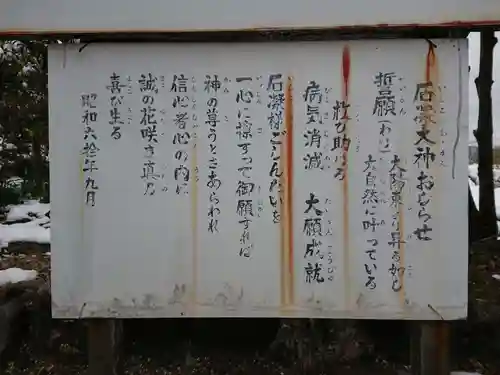 石凝大神おしらせ
哲願(わ)
太陽東より昇る如し
大自然に叶っている
救ひ助ける
病気消滅 大願成就
石凝様ごしんたいを
一心に擦すって御願すれば
神の尊うとさあらわれ
信心者心の内に
誠の花咲き真る
喜び生る
昭和六拾年九月